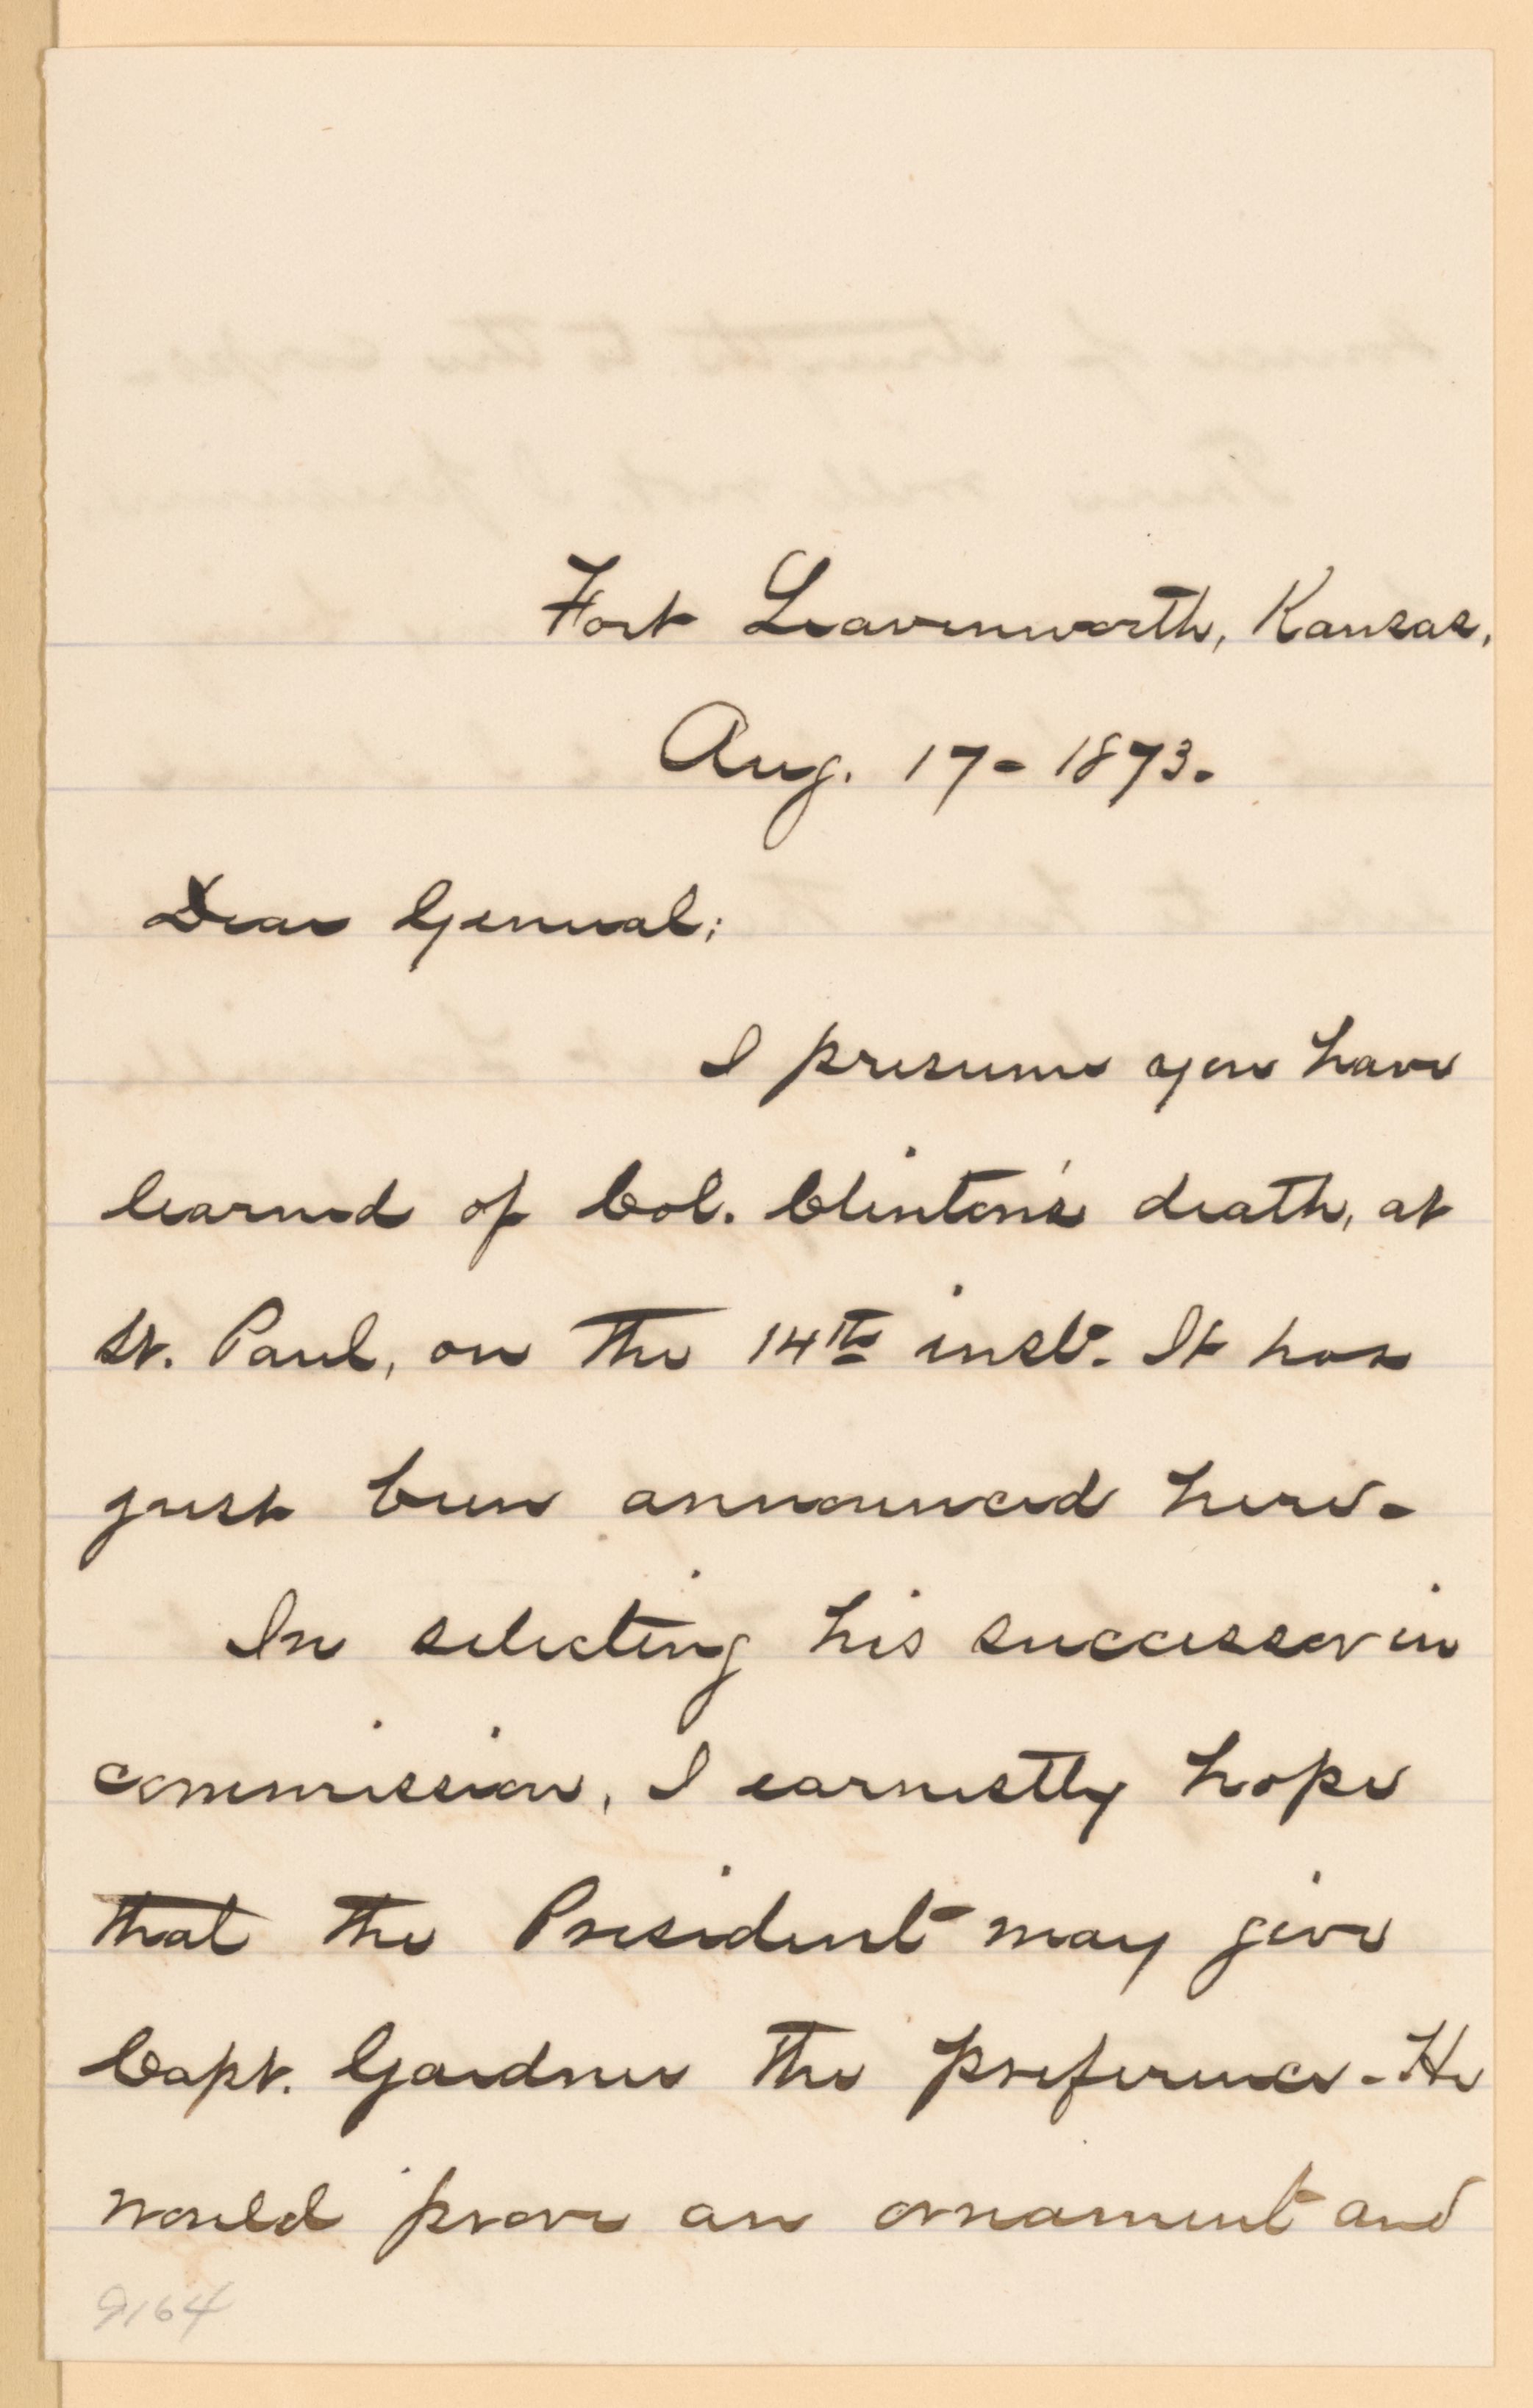 Fort Leavenworth, Kansas,
Aug. 17- 1873.
Dear General;
I presume you have
learned of Col. Clinton's death, at
St. Paul, on the 14th inst. It has
just been announced here-
In selecting his successor in
commission, I earnestly hope
that the President may give
Capt. Gardner the preference- He
would prove an ornament and
9164